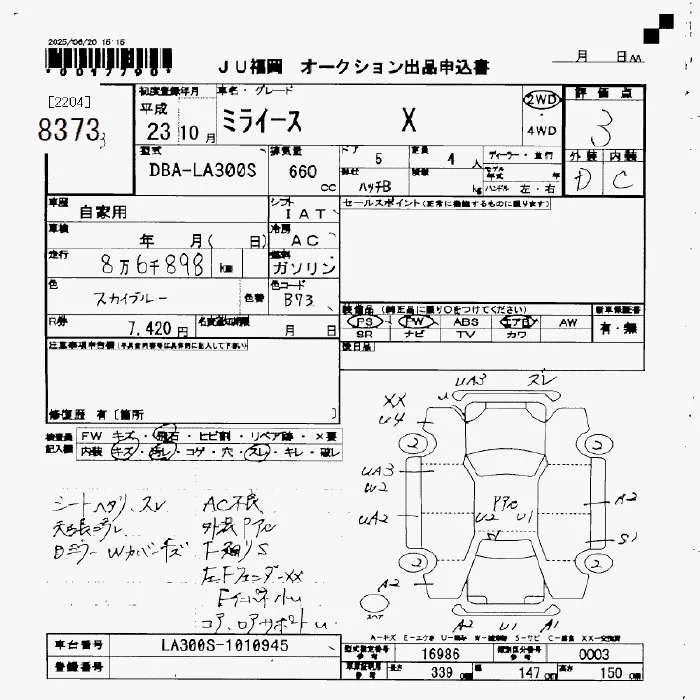 2025/06/20 16:15
*0017790*
JU福岡 オークション出品申込書
月 日
[2204]
8373
初度登録年月 平成 23 10月
車名・グレード ミライース X
2WD・4WD
評価点 3
外装 D 内装 C
型式 DBA-LA300S
排気量 660 cc
ドア 5
形状 ハッチB
定員 4 人
積載 kg
ディーラー・並行
モデル年式 年
ハンドル 左・右
車歴 自家用
シフト IAT
セールスポイント(正常に機能するものに限ります)
車検 年 月( 日)
冷房 AC
走行 8万6千898 km
燃料 ガソリン
色 スカイブルー
色替
色コード B73
R券 7,420円
名義変更期限 月 日
装備品 (純正品に限り○をつけてください)
PS PW ABS エアB AW
SR ナビ TV カワ
新車保証書 有・無
後日品
注意事項申告欄
修復歴 有[箇所 ]
検査員記入欄
FW キズ・飛石・ヒビ割・リペア跡・X要
内装 キズ・汚レ・コゲ・穴・スレ・キレ・破レ
シートヘタリ、スレ
AC不良
外装
F廻りS
左Fフェンダーxx
FインパネルU
コア、ロアサポートU
UA3 スレ
XX
U4
U
2 2
UA3
W2
UA2
U2 U1
W
A2
S1
2 2
A2
A2 U1 A1
A-キズ E-エクボ U-凹み W-補修跡 S-サビ C-腐食 XX-交換済
車台番号 LA300S-1010945
登録番号
型式指定番号 参考 16986
類別区分番号 参考 0003
長さ 339 幅 147 高さ 150